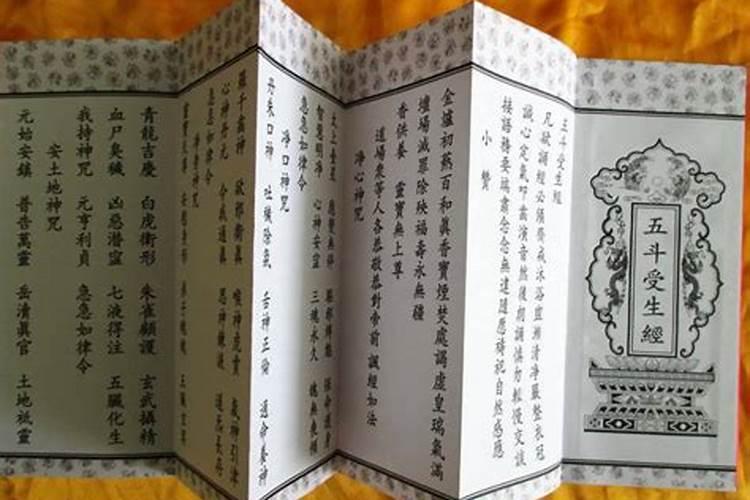 五斗受生經
五斗受生經
凡欲誦經必須齋戒沐浴盥漱清淨嚴整衣冠
誠心定氣叩齒演音然後朗誦慎勿輕慢交談
接語務要端肅念念無違隨應禱祀自然感應
小贊
金爐初熱百和真香寶煙焚處謁虛皇瑞氣滿
壇場滅罪除殃福壽永無疆
香供養 靈寶無上尊
道場衆等人各恭敬恭對帝前 誦經如法
淨心神咒
太上台星 應變無停 驅邪縛魅 保命護身
智慧明淨 心神安寧 三魂永久 魄無喪傾
急急如律令
淨口神咒
丹朱口神 吐穢除氛 舌神正倫 通命養神
羅千齒神 卻邪衛真 喉神虎賁 氣神引津
心神丹元 令我通真 思神鍊液 道炁長存
急急如律令
淨身神咒
靈寶天尊 安慰身形 弟子魂魄 五臟玄冥
青龍吉慶 白虎衛形 朱雀顧護 玄武攝精
血尸臭穢 凶惡潛寧 七液得注 五臟化生
我持神咒 元亨利貞 急急如律令
安土地神咒
元始安鎮 普告萬靈 岳瀆真官 土地祇靈